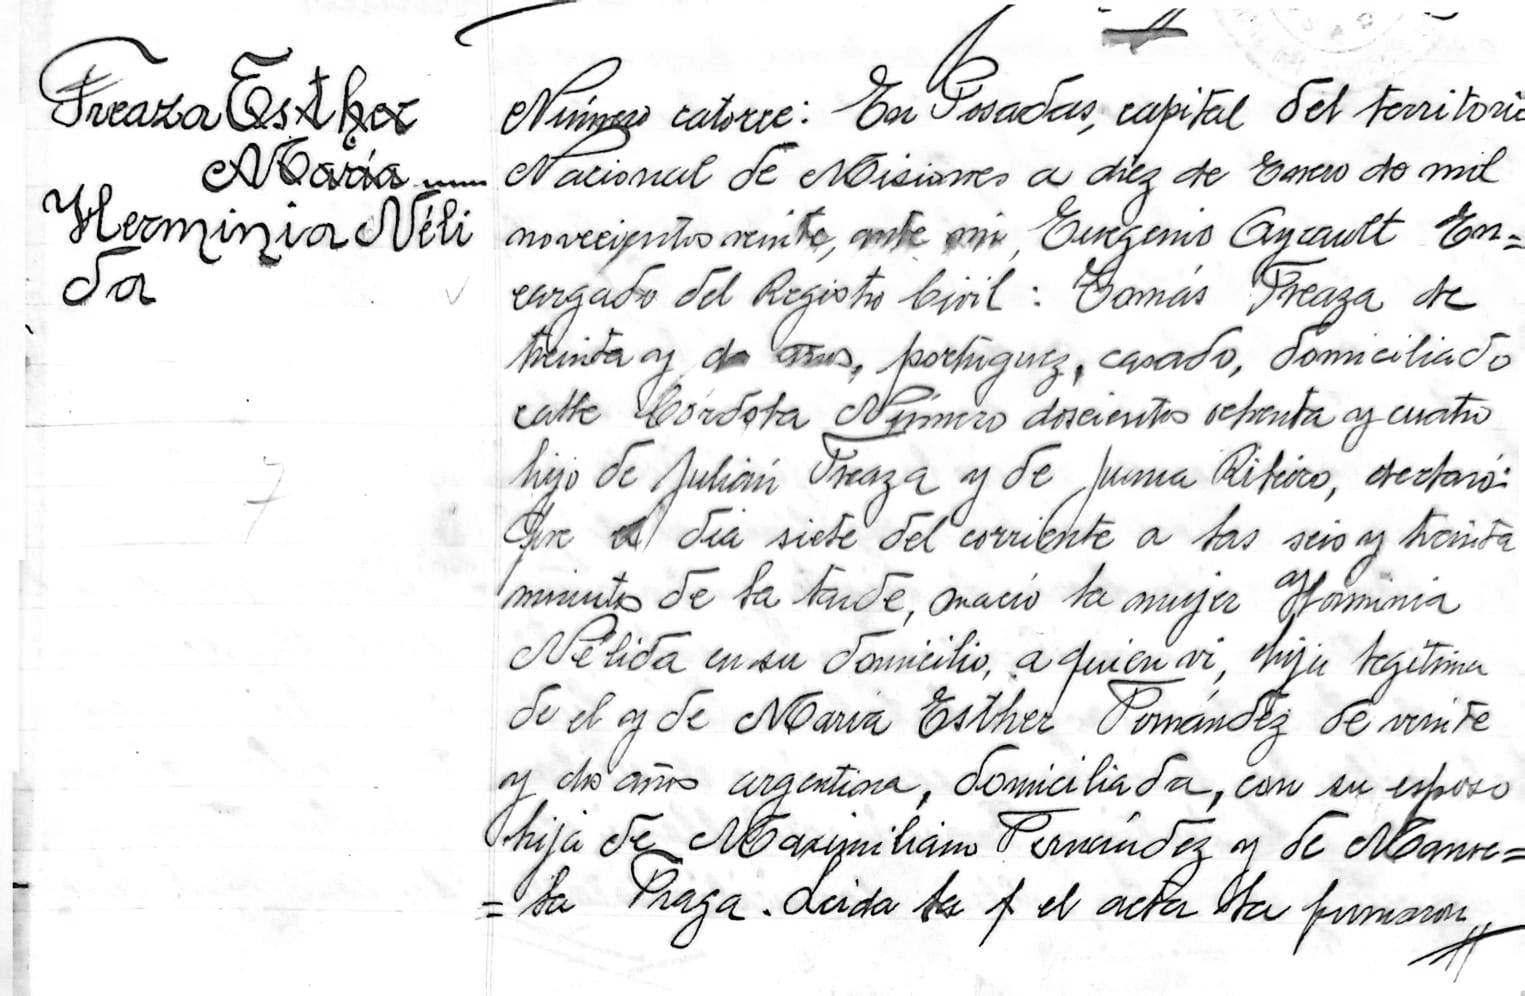 Freaza Esther
María
Herminia Néli
da
Número catorce: En Posadas, capital del territorio
Nacional de Misiones a diez de Enero de mil
novecientos veinte, ante mi, Eugenio Ayrault En=
cargado del Registro Civil: Tomás Freaza de
treinta y años, portuguez, casado, domiciliado
calle Córdoba Número doscientos setenta y cuatro
hijo de Julián Freaza y de Juana Ribeiro, declaró:
Que el dia siete del corriente a las seis y treinta
minutos de la tarde, nació la mujer Herminia
Nélida en su domicilio, a quien vi, hija legitima
de el y de María Esther Fernández de veinte
y dos años argentina, domiciliada, con su esposo
hija de Maximiliano Fernández y de Manue=
=la Fraga. Leida el acta la firmaron
7